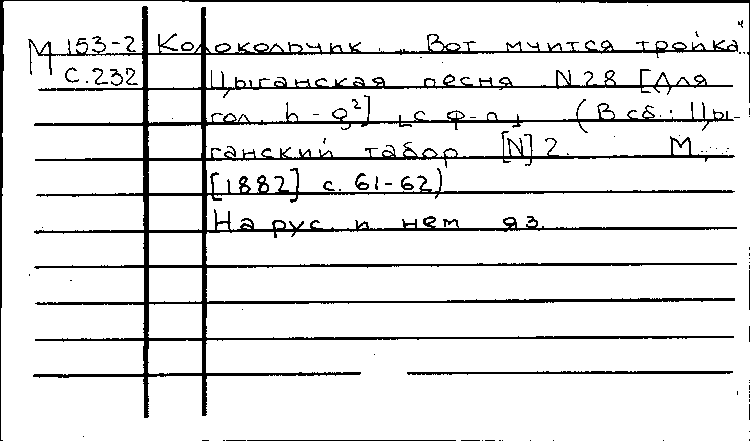 М 153-2 Колокольчик. „Вот мчится тройка..."
С. 232 Цыганская песня N 28 [Для
гол. h - g²] [с ф-п] (В сб.: Цы-
ганский табор [N] 2. М.,
[1882] с. 61-62)
На рус. и нем яз.